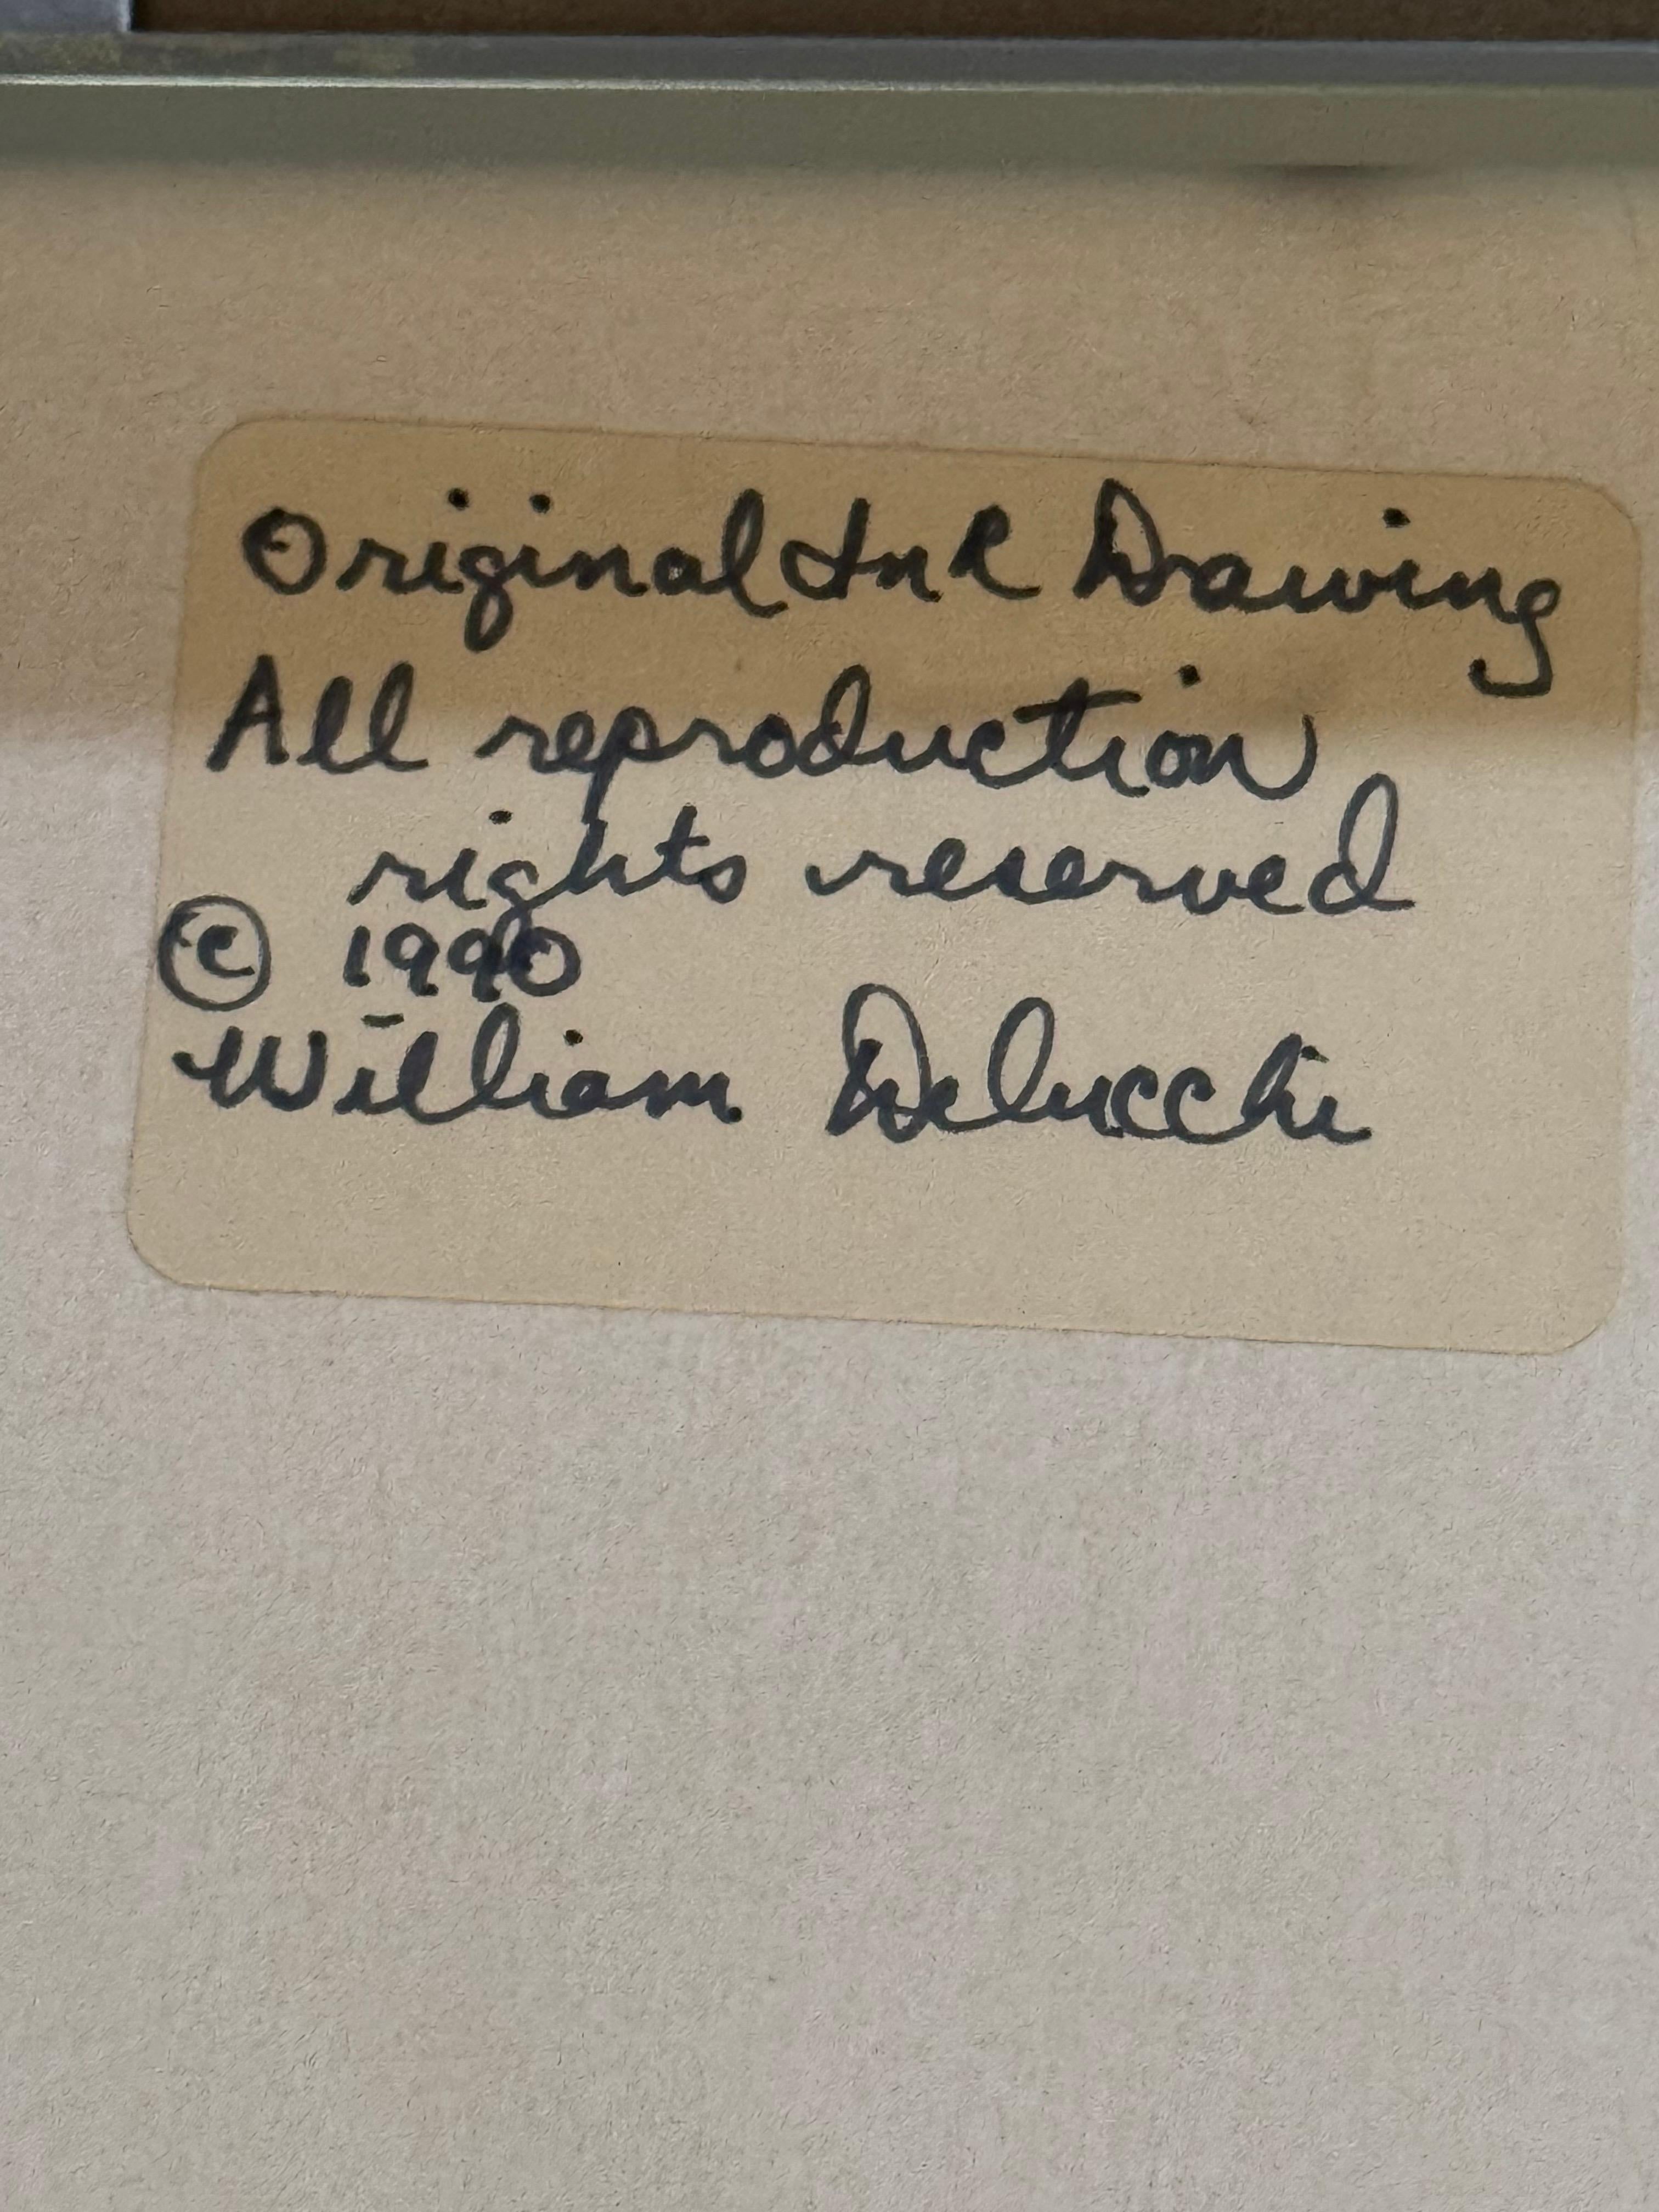 Original Ink Drawing
All reproduction
rights reserved
© 1990
William Delucchi